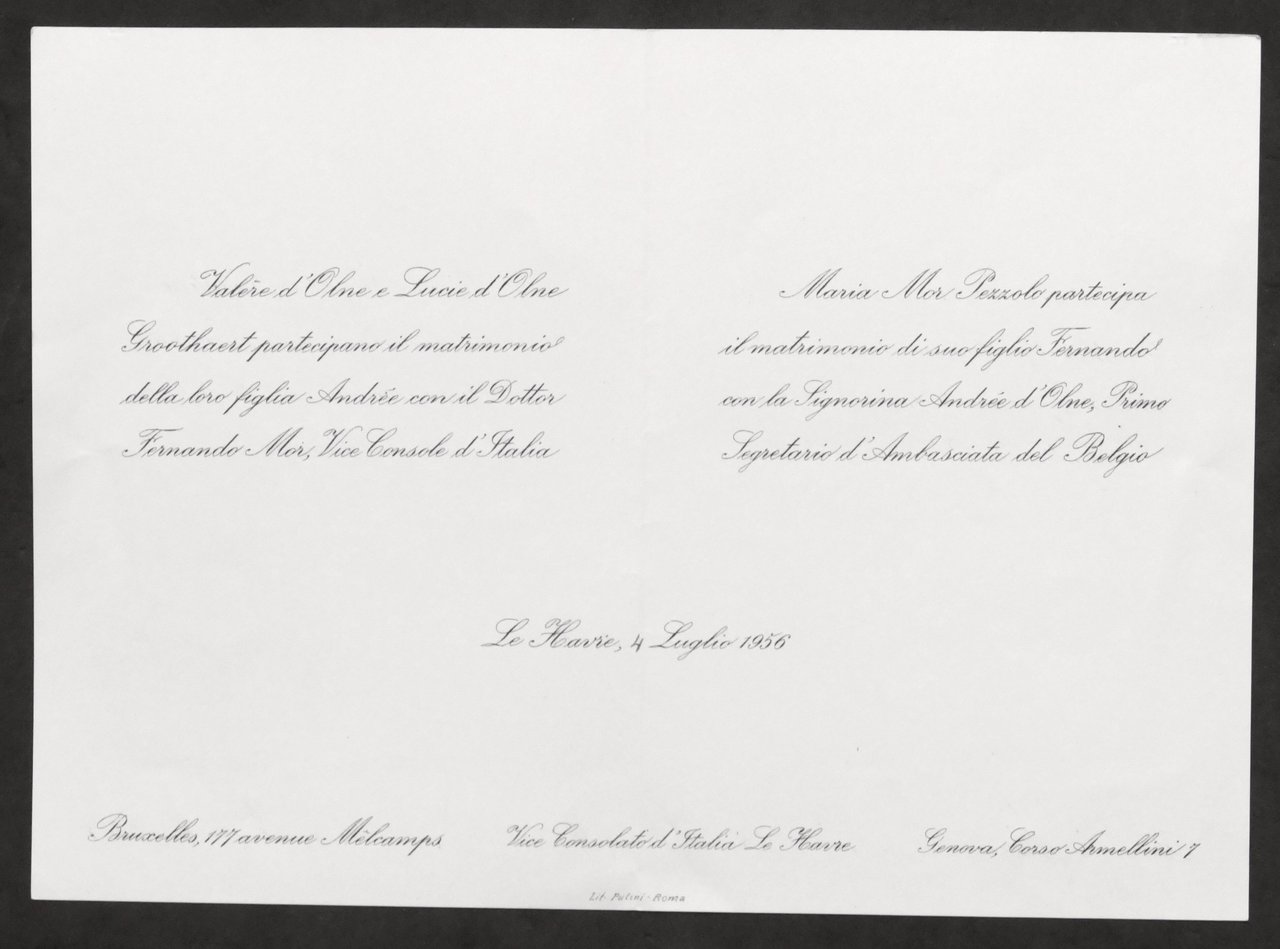 Valère d'Olne e Lucie d'Olne
Groothaert partecipano il matrimonio
della loro figlia Andrée con il Dottor
Fernando Mor, Vice Console d'Italia
Maria Mor Pezzolo partecipa
il matrimonio di suo figlio Fernando
con la Signorina Andrée d'Olne, Primo
Segretario d'Ambasciata del Belgio
Le Havre, 4 Luglio 1956
Bruxelles, 177 avenue Mélcamps
Vice Consolato d'Italia Le Havre
Genova, Corso Armellini 7
Lit. Pulini - Roma